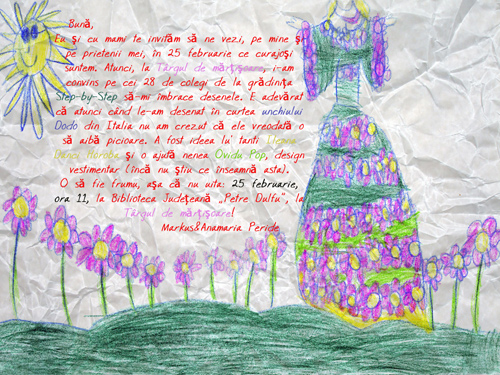 Bună,
Eu şi cu mami te invităm să ne vezi, pe mine şi
pe prietenii mei, în 25 februarie ce curajoşi
suntem. Atunci, la Târgul de mărţişoare, i-am
convins pe cei 28 de colegi de la grădiniţa
Step-by-Step să-mi îmbrace desenele. E adevărat
că atunci când le-am desenat în curtea unchiului
Dodo din Italia nu am crezut că ele vreodată o
să aibă picioare. A fost ideea lu' tanti
Horoba şi o ajută nenea Ovidiu Pop, design
vestimentar (încă nu ştiu ce înseamnă asta).
O să fie frumu, aşa că nu uita: 25 februarie,
ora 11, la Biblioteca Judeţeană „Petre Dulfu", la
Târgul de mărţişoare!
Markus&Anamaria Peride